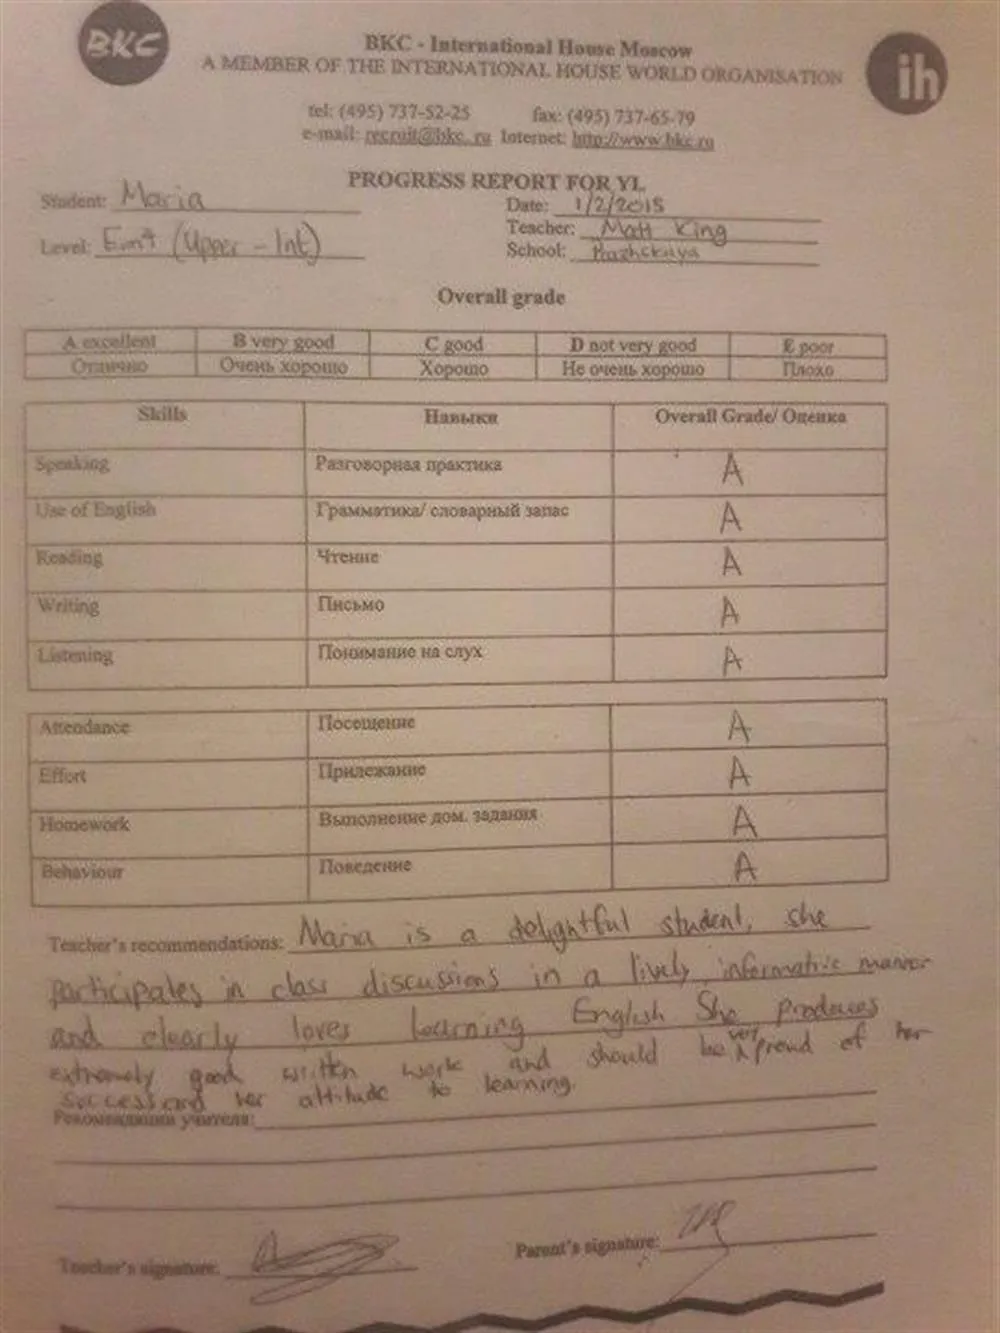 BKC
BKC - International House Moscow
A MEMBER OF THE INTERNATIONAL HOUSE WORLD ORGANISATION
ih
tel: (495) 737-52-25 fax: (495) 737-65-79
e-mail: recruit@bkc. ru Internet: http://www.bkc.ru
PROGRESS REPORT FOR YL
Student: Maria
Date: 1/2/2015
Teacher: Matt King
Level: (Upper - Int)
School: Prazhskaya
Overall grade
A excellent B very good C good D not very good E poor
Отлично Очень хорошо Хорошо Не очень хорошо Плохо
Skills Навыки Overall Grade/ Оценка
Speaking Разговорная практика A
Use of English Грамматика/ словарный запас A
Reading Чтение A
Writing Письмо A
Listening Понимание на слух A
Attendance Посещение A
Effort Прилежание A
Homework Выполнение дом. задания A
Behaviour Поведение A
Teacher's recommendations: Maria is a delightful student, she
participates in class discussions in a lively informative manner
and clearly loves learning English She produces
extremely good written work and should be very proud of her
success and her attitude to learning.
Рекомендации учителя:
Teacher's signature:
Parent's signature: